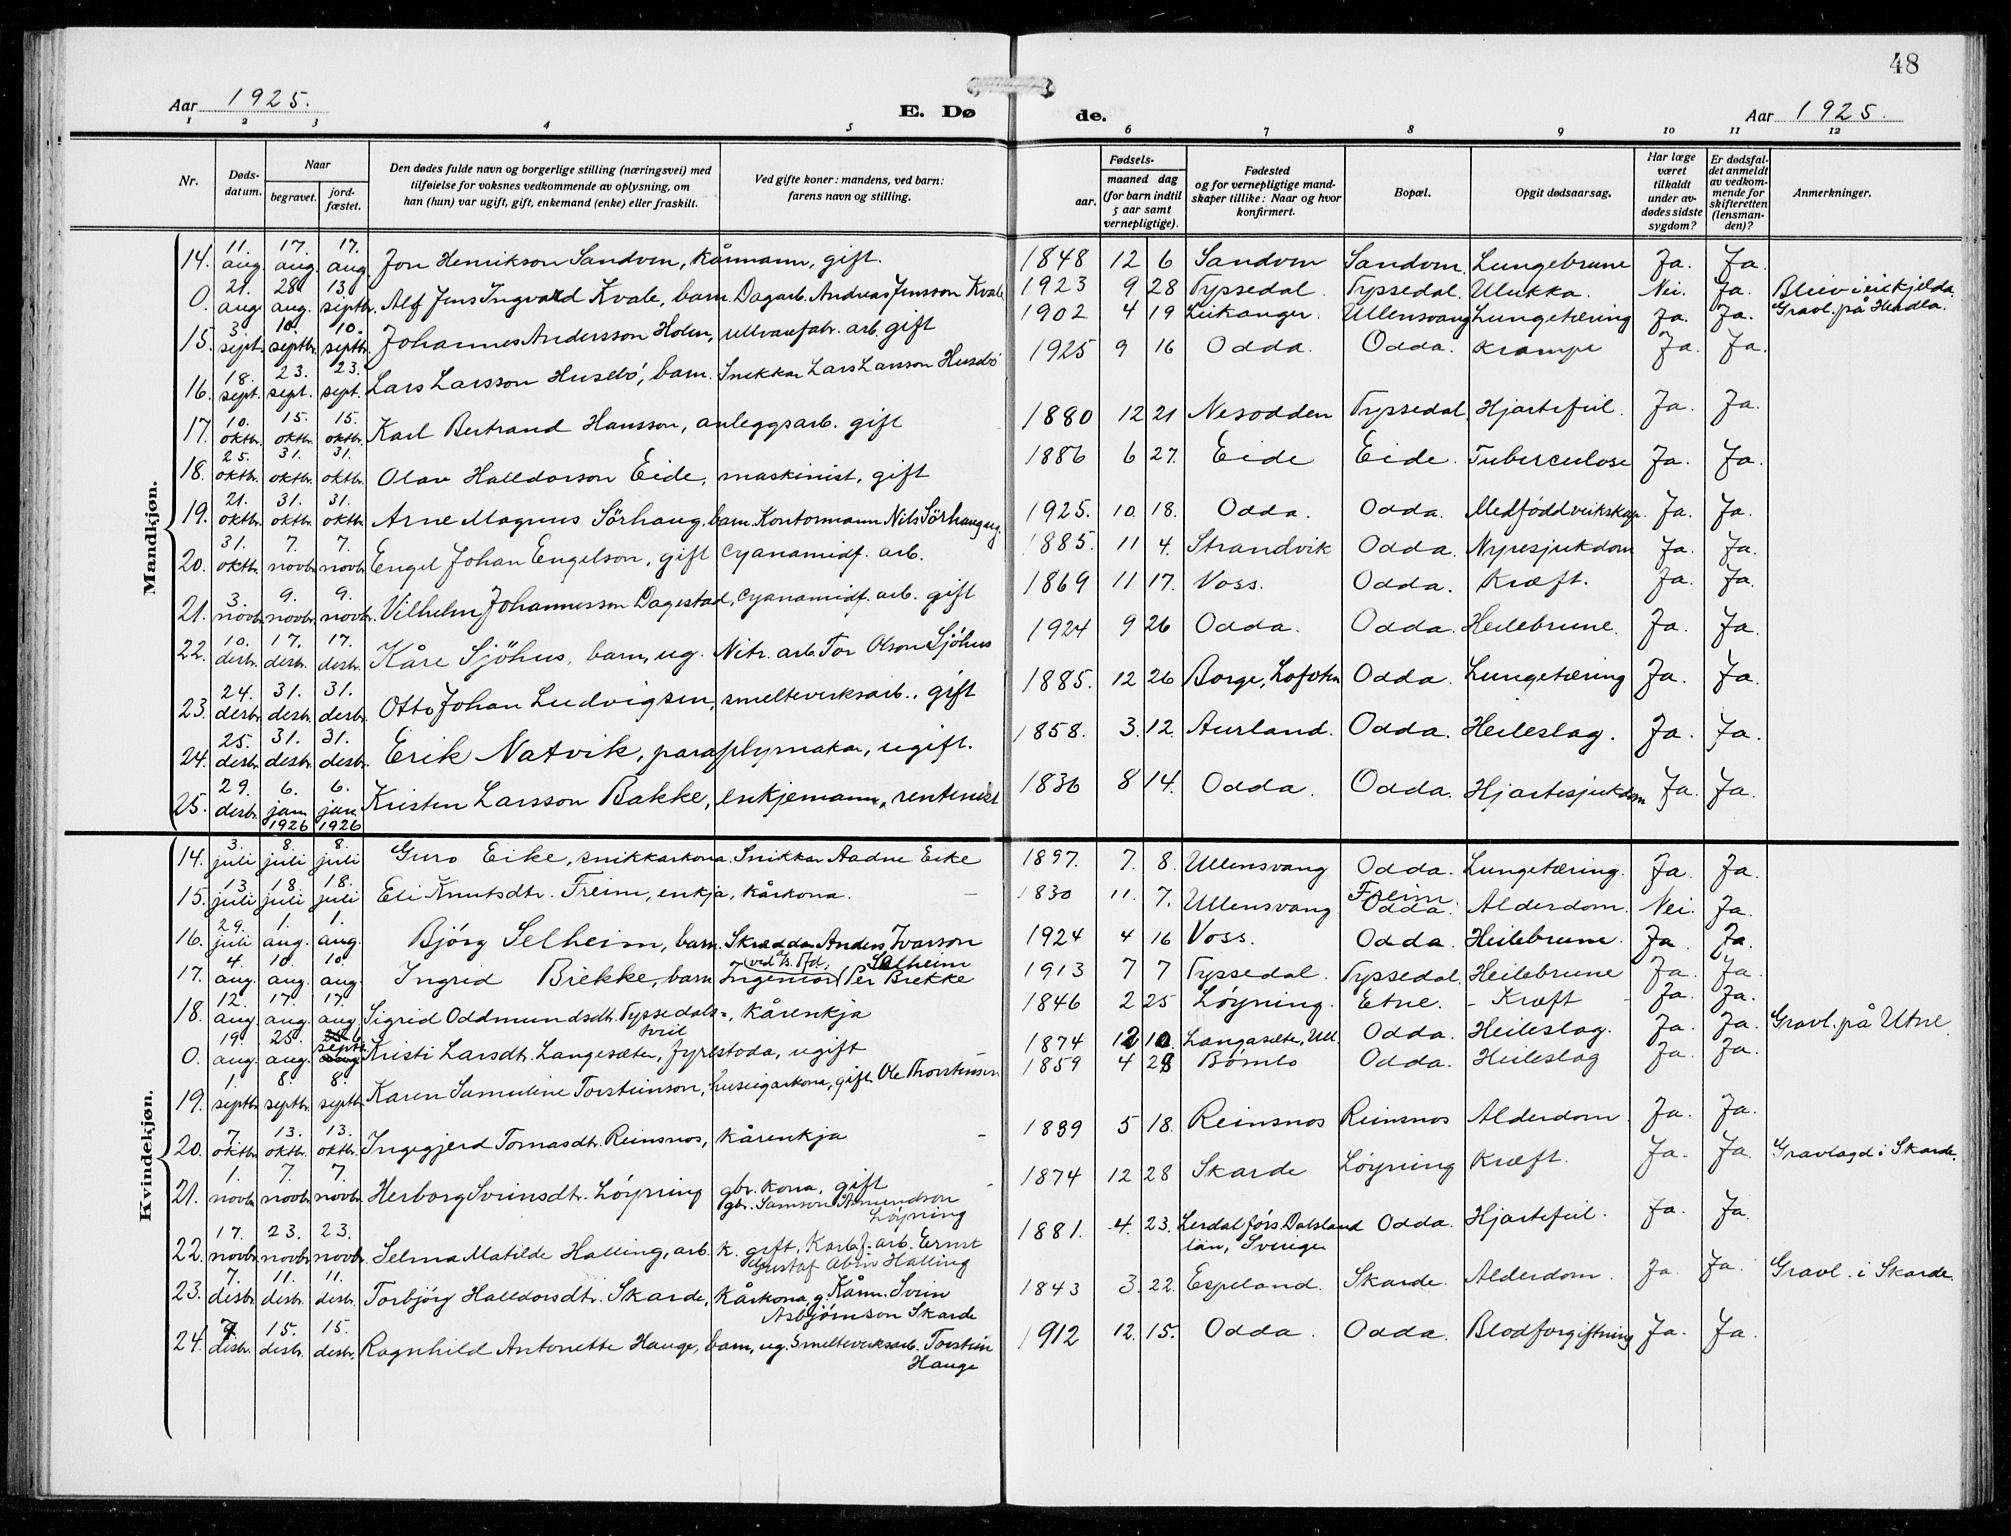 48
Aar 1925.
E. Døde.
Aar 1925.
1 2 3 4 5 6 7 8 9 10 11 12
Nr.
Døds-
datum.
Naar
begravet.
jord-
fæstet.
Den dødes fulde navn og borgerlige stilling (næringsvei) med
tilføielse for voksnes vedkommende av oplysning, om
han (hun) var ugift, gift, enkemand (enke) eller fraskilt.
Ved gifte koner: mandens, ved barn:
farens navn og stilling.
Fødsels-
aar.
maaned dag
(for barn indtil
5 aar samt
vernepligtige).
Fødested
og for vernepligtige mand-
skaper tillike: Naar og hvor
konfirmert.
Bopæl.
Opgit dødsaarsag.
Har læge
været
tilkaldt
under av-
dødes sidste
sygdom?
Er dødsfal-
det anmeldt
av vedkom-
mende for
skifteretten
(lensman-
den)?
Anmerkninger.
Mandkjøn.
14. 11. aug. 17. aug. 17. aug. Jon Henrikson Sandven, kårmann, gift. 1848 12 6 Sandven Sandven. Lungebrune Ja. Ja.
0. 21. aug. 28. aug. 13. septbr. Alf Jens Ingvald Kvale, barn. Dagarb. Andreas Jensson Kvale 1923 9 28 Tyssedal. Tyssedal. Ulukka. Nei. Ja. Bleiv i eikjelda.
15. 3. sept. 10. septbr. 10. septbr. Johannes Andersson Holen, ullvarefabr. arb. gift 1902 4 19 Leikanger. Ullensvang Lungetæring Ja. Ja. Gravl. på Hendla.
16. 18. sept. 23. sept. 23. sept. Lars Larsson Husebö, barn. Snikkar Lars Larsson Husebö 1925 9 16 Odda. Odda. Krampe Ja. Ja.
17. 10. oktbr. 15. oktbr. 15. oktbr. Karl Bertrand Hansson, anleggsarb. gift 1880 12 21 Nesodden Tyssedal. Hjartefeil. Ja. Ja.
18. 25. oktbr. 31. oktbr. 31. oktbr. Olav Halldorson Eide, maskinist, gift 1886 6 27. Eide Eide. Tuberculose Ja. Ja.
19. 21. oktbr. 31. oktbr. 31. oktbr. Arne Magnus Sörhaug, barn. Kontormann Nils Sörhaug ug. 1925. 10. 18. Odda. Odda. Medföddveikskap. Ja. Ja.
20. 31. oktbr. 7. novbr. 7. novbr. Engel Johan Engelson, gift cyanamidf. arb. 1885. 11 4. Strandvik Odda. Nyresjukdom Ja. Ja.
21. 3. novbr. 9. novbr. 9. novbr. Vilhelm Johannesson Dagestad, cyanamidf. arb. gift 1869 11 17. Voss. Odda. Kræft. Ja. Ja.
22. 10. desbr. 17. desbr. 17. desbr. Kåre Sjöhus, barn, ug. Nitr. arb. Tor Olson Sjöhus 1924 9 26 Odda. Odda. Heilebrune. Ja. Ja.
23. 24. desbr. 31. desbr. 31. desbr. Otto Johan Ludvigsen, smelteverksarb., gift 1885. 12 26 Borge, Lofoten Odda. Lungetæring Ja. Ja.
24. 25. desbr. 31. desbr. 31. desbr. Erik Natvik, paraplymakar, ugift. 1858. 3. 12. Aurland. Odda. Heileslag. Ja. Ja.
25. 29. desbr. 6. jan. 1926 6. jan. 1926 Kristen Larsson Bakke, enkjemann, rentenist 1836 8 14. Odda. Odda. Hjartesjukdom Ja. Ja.
Kvindekjøn.
14. 3. juli 8. juli 8. juli Guro Eike, snikkarkona. Snikkar Aadne Eike 1897. 7. 8. Ullensvang Odda. Lungetæring. Ja. Ja.
15. 13. juli 18. juli 18. juli Eli Knutsdtr. Freim, enkja, kårkona. 1830 11. 7. Ullensvang Freim Odda. Alderdom. Nei. Ja.
16. 29. juli 1. aug. 1. aug. Bjørg Selheim, barn. Skræddar Anders Ivarson Selheim 1924 4 16 Voss. Odda. Heilebrune. Ja. Ja.
17. 4. aug. 10. aug. 10. aug. Ingrid Brekke, barn Ingeniør (ved A/S. Tfd.) Per Brekke 1913 7 7 Tyssedal. Tyssedal. Heilebrune Ja. Ja.
18. 12. aug. 17. aug. 17. aug. Sigrid Oddmundsdtr. Tyssedal, kårenkja 1846 2 25 Löyning. Etne. Kræft Ja. Ja.
0. 19. aug. 25. aug. septb. Kristi Larsdtr. Langesæte, ugift 1874 12 10. Langasæte, Ull. Odda. Heileslag. Ja. Ja. Gravl. på Utne.
19. 1. septbr. 8. septbr. 8. septbr. Karen Samueline Torsteinson, huseigarkona, gift. Ole Thorstensen 1859 4 28 Bömlo Odda. Heileslag Ja. Ja.
20. 7. oktbr. 13. oktbr. 13. oktbr. Ingegjerd Tomasdtr. Reinsnos, kårenkja 1839 5 18. Reinsnos Reinsnos Alderdom. Ja. Ja.
21. 1. novbr. 7. novbr. 7. novbr. Herborg Sveinsdtr. Löyning gbr. kona, gift
gbr. Samson Amundson Löyning 1874 12 28 Skarde Löyning Kræft. Ja. Ja. Gravlagd i Skarde.
22. 17. novbr. 23. novbr. 23. novbr. Selma Matilde Halling, arb. k. gift, Karbf. arb. Ernst
Gustaf Albin Halling 1881. 4. 23. Lerdal förs. Dalsland län, Sverige Odda. Hjartefeil. Ja. Ja.
23. 7. desbr. 11. desbr. 11. desbr. Torbjörg Halldorsdtr. Skarde, kårkona, g. Kårm. Svein
Asbjörnson Skarde 1843 3. 22. Espeland. Skarde. Alderdom. Ja. Ja. Gravl. i Skarde.
24. 9. desbr. 15. desbr. 15. desbr. Ragnhild Antonette Hauge, barn, ug. Smelteverksarb. Torstein
Hauge 1912 12. 15. Odda. Odda. Blodforgiftning Ja. Ja.